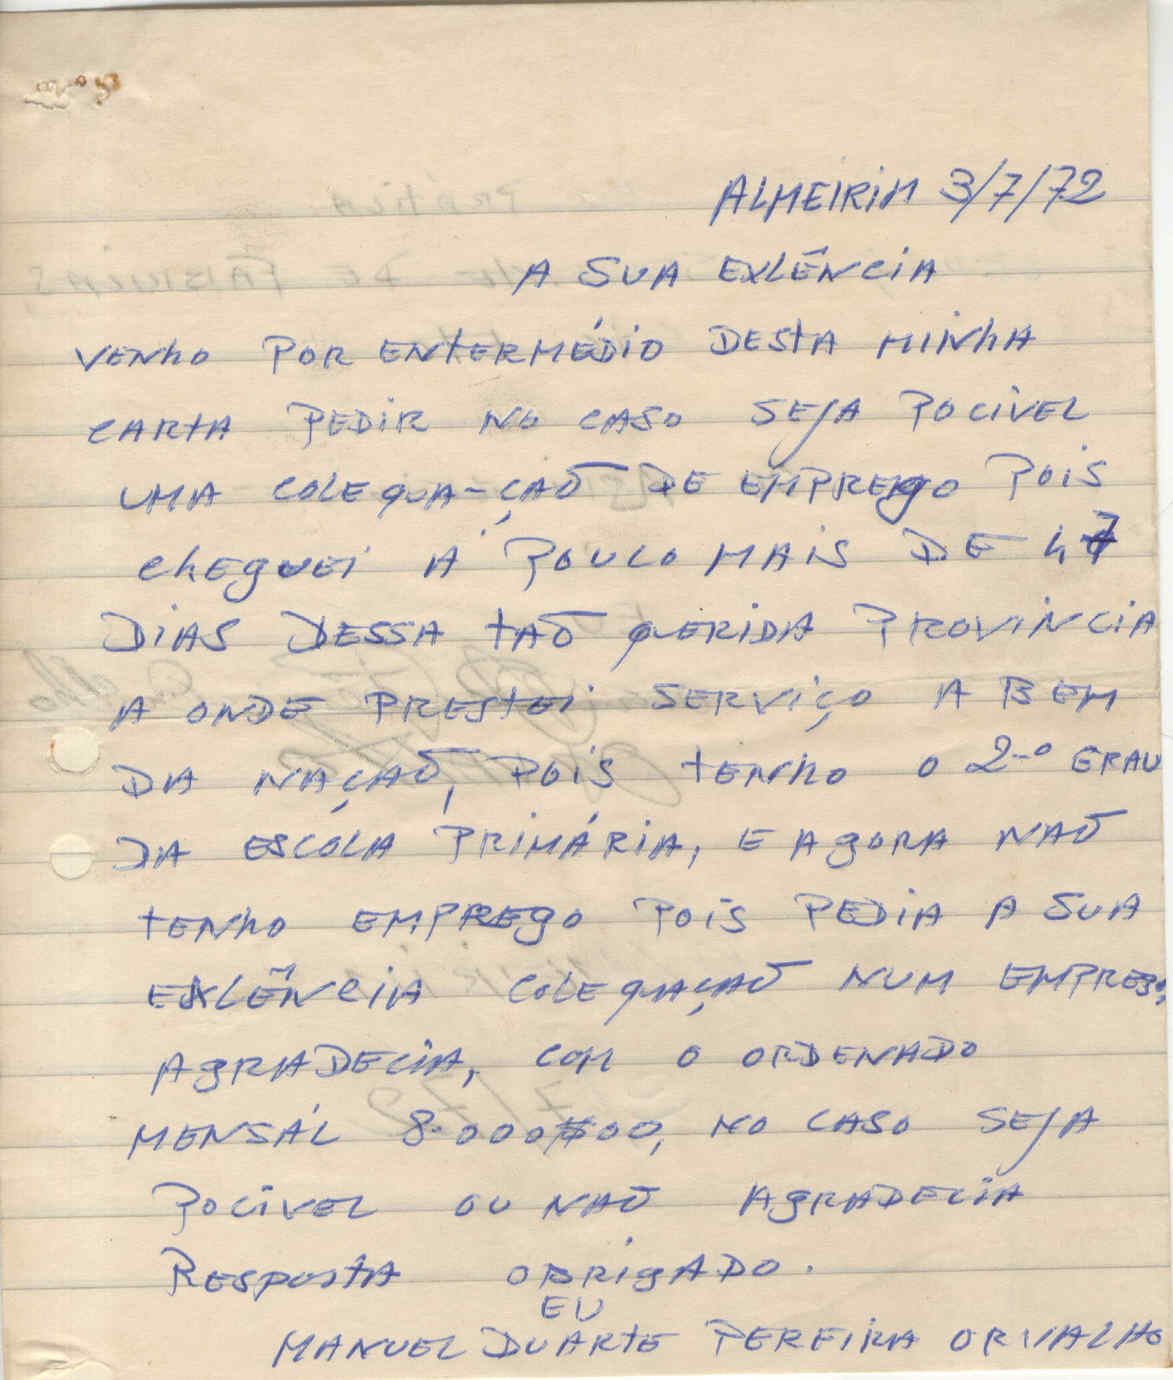 ALMEIRIM 3/7/72
A SUA EXLÊNCIA
VENHO POR ENTERMÉDIO DESTA MINHA
CARTA PEDIR NO CASO SEJA POCIVEL
UMA COLEQUA-ÇAÕ DE EMPREGO POIS
CHEGUEI A POUCO MAIS DE 47
DIAS DESSA TAÕ QUERIDA PROVINCIA
A ONDE PRESTEI SERVIÇO A BEM
DA NAÇAÕ, POIS TENHO O 2-º GRAU
DA ESCOLA PRIMÁRIA, E AGORA NAÕ
TENHO EMPREGO POIS PEDIA A SUA
EXLÊNCIA COLEQUAÇAÕ NUM EMPREGO,
AGRADECIA, COM O ORDENADO
MENSÁL 8.000$00, NO CASO SEJA
POCIVEL OU NAÕ AGRADECIA
RESPOSTA OBRIGADO.
EU
MANUEL DUARTE PEREIRA ORVALHO